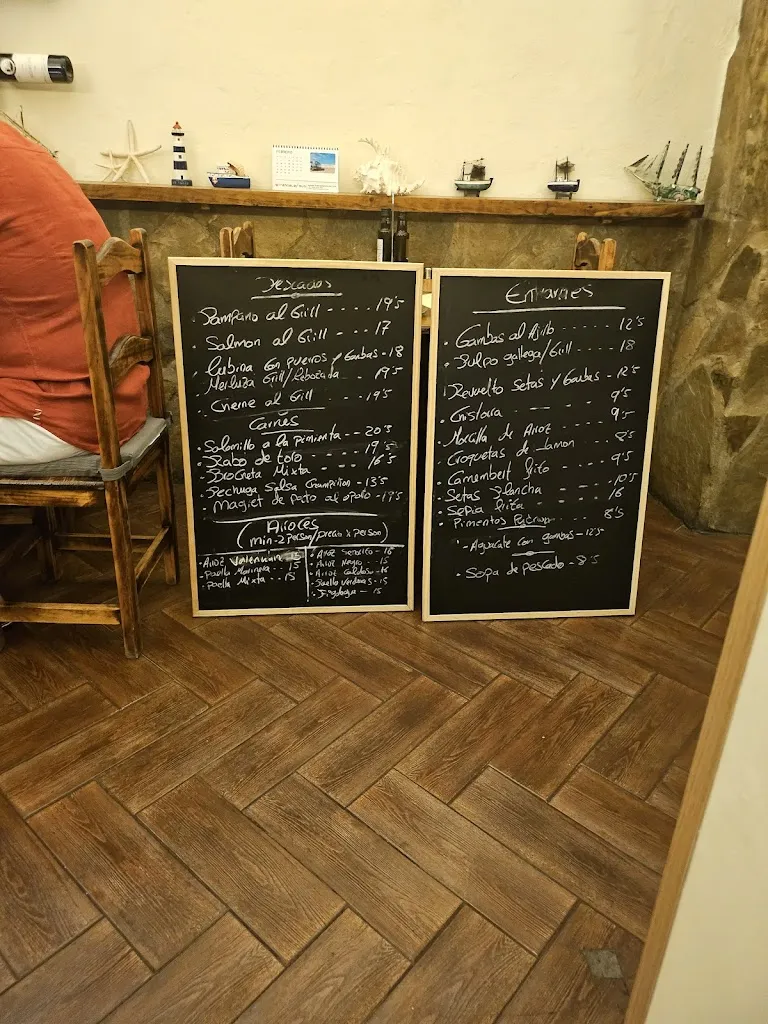 Pescados
- Pampano al Grill ---- 19'5
- Salmon al Grill ---- 17
- Lubina en puerros y Gambas - 18
- Merluza Grill/Rebozada -- 19'5
- Cherne al Grill ---- 19'5
Carnes
- Solomillo a la pimienta -- 20'5
- Rabo de toro --- 19'5
- Brocheta Mixta --- 16'5
- Pechuga Salsa Champiñon - 13'5
- Magret de pato al oporto - 19'5
Arroces
(min-2 person/precio x person)
- Arroz Valencian 15
- Paella Marinera -- 15
- Paella Mixta -- 15
- Arroz Señorito - 16
- Arroz Negro -- 15
- Arroz Caldoso - 16
- Paella Verduras - 15
- Fideuá -- 15
Entrantes
- Gambas al Ajillo ------ 12'5
- Pulpo gallega/Grill ---- 18
- Revuelto Setas y Gambas - 12'5
- Chistorra --- 9'5
- Morcilla de Arroz --- 9'5
- Croquetas de Jamon --- 8'5
- Camembert frito ---- 9'5
- Setas Plancha ---- 10'5
- Sepia frita ---- 16
- Pimientos Padron -- 8'5
- Aguacate con gambas - 12'5
- Sopa de pescado - 8'5